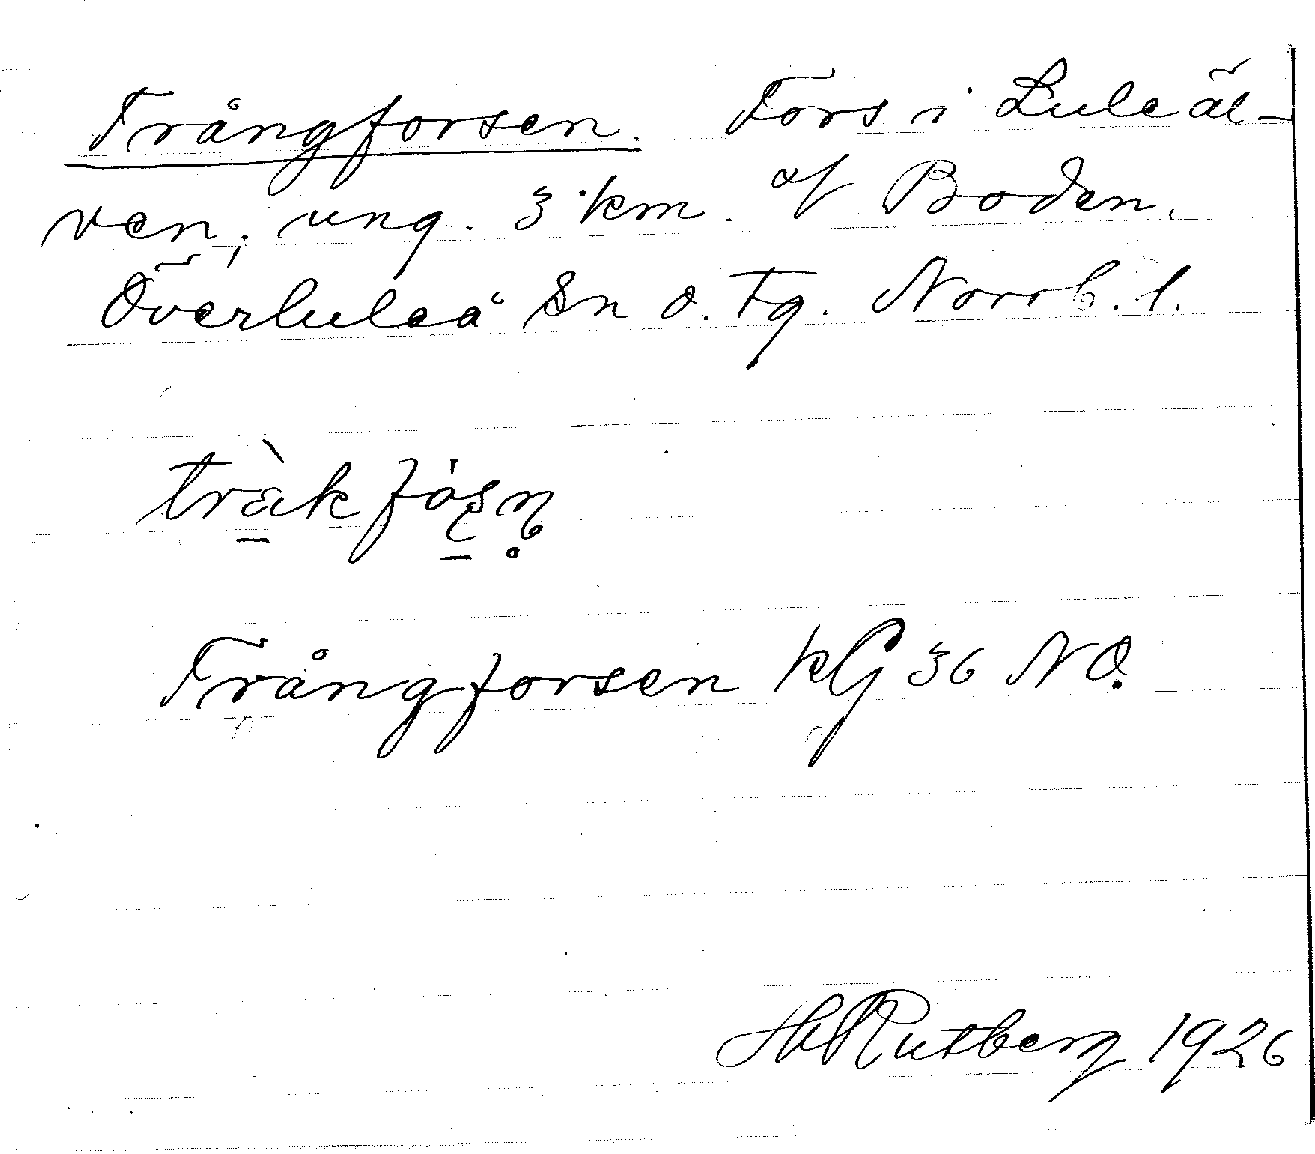 Trångforsen. Fors i Luleäl-
ven, ung. 3 km. af Boden.
Överluleå Sn o. Tg. Norrb. l.
tràk fósn̥
Trångforsen kG 36 NO.
H Rutberg 1926